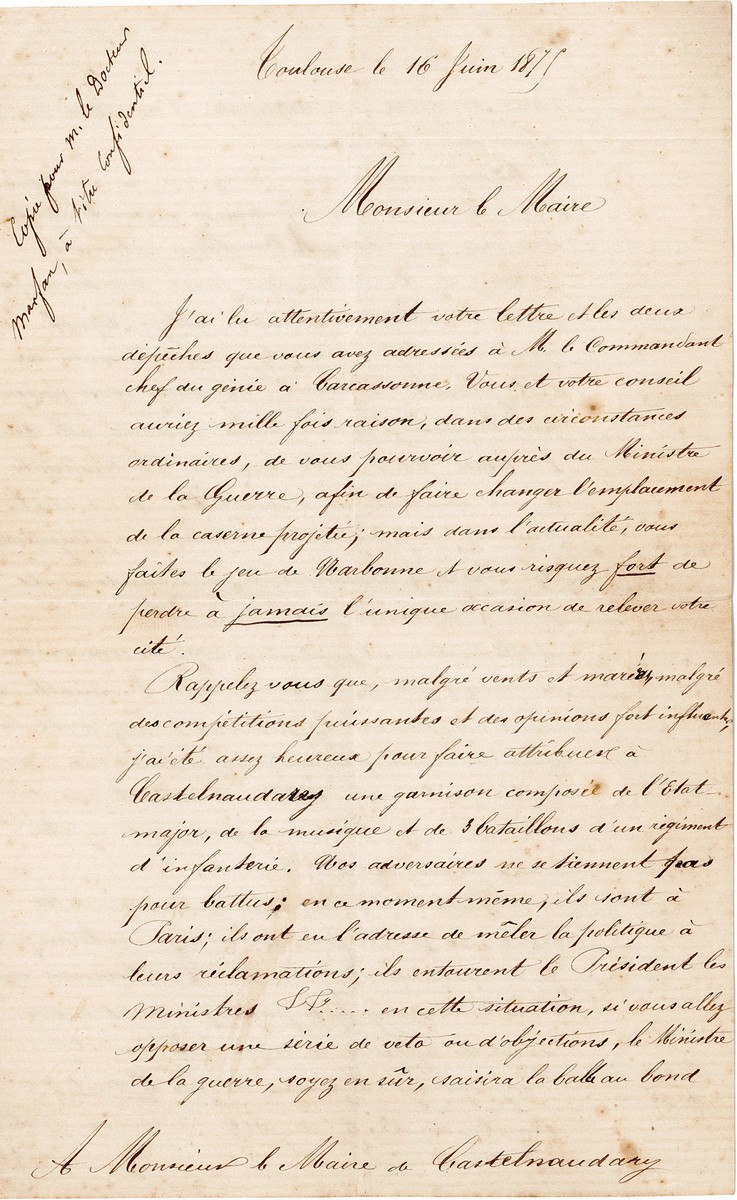 Copie pour M. le Docteur
Marfan, à titre Confidentiel.
Toulouse le 16 Juin 1875
Monsieur le Maire
J'ai lu attentivement votre lettre et les deux
dépêches que vous avez adressées à M. le Commandant
chef du génie à Carcassonne. Vous et votre conseil
auriez mille fois raison, dans des circonstances
ordinaires, de vous pourvoir auprès du Ministre
de la Guerre, afin de faire changer l'emplacement
de la caserne projetée; mais dans l'actualité, vous
faites le jeu de Narbonne et vous risquez fort de
perdre à jamais l'unique occasion de relever votre
cité.
Rappelez vous que, malgré vents et marées, malgré
des compétitions puissantes et des opinions fort influentes,
j'ai été assez heureux pour faire attribuer à
Castelnaudary une garnison composée de l'Etat-
major, de la musique et de 3 bataillons d'un régiment
d'infanterie. Nos adversaires ne se tiennent pas
pour battus; en ce moment même, ils sont à
Paris; ils ont eu l'adresse de mêler la politique à
leurs réclamations; ils entourent le Président les
Ministres &&..... en cette situation, si vous allez
opposer une série de veto ou d'objections, le Ministre
de la guerre, soyez en sûr, saisira la balle au bond
A Monsieur le Maire de Castelnaudary